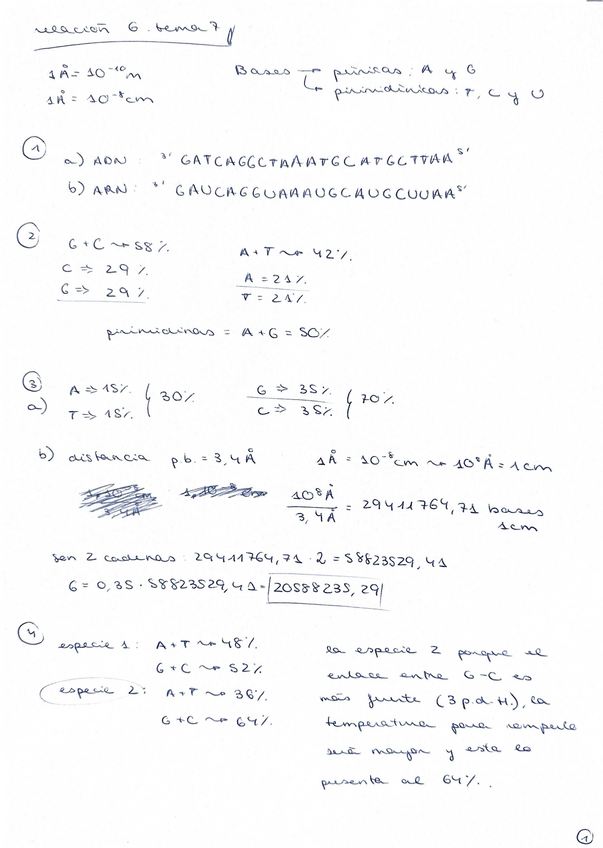 relación 6. tema 7
1Å = 10⁻¹⁰ m
1Å = 10⁻⁸ cm
Bases → púricas: A y G
↳ pirimidínicas: T, C y U
① a) ADN: 3' GATCAGGCTAAATGCATGCTTAA 5'
b) ARN: 3' GAUCAGGUAAAUGCAUGCUUAA 5'
②
G + C ⇝ 58%.
C ⇒ 29%.
G ⇒ 29%.
A + T ⇝ 42%.
A = 21%.
T = 21%.
pirimidinas = A + G = 50%.
③
a) A ⇒ 15%.
T ⇒ 15%.
30%.
G ⇒ 35%.
C ⇒ 35%.
70%.
b) distancia p.b. = 3,4 Å
1Å = 10⁻⁸ cm ⇝ 10⁸ Å = 1 cm
10⁸ Å / 3,4 Å = 29411764,71 bases
1cm
son 2 cadenas: 29411764,71 · 2 = 58823529,41
G = 0,35 · 58823529,41 = 20588235,29
④
especie 1: A + T ⇝ 48%.
G + C ⇝ 52%.
especie 2: A + T ⇝ 36%.
G + C ⇝ 64%.
la especie 2 porque el
enlace entre G-C es
más fuerte (3 p.d.H.), la
temperatura para romperlo
será mayor y esta lo
presenta al 64%.
①